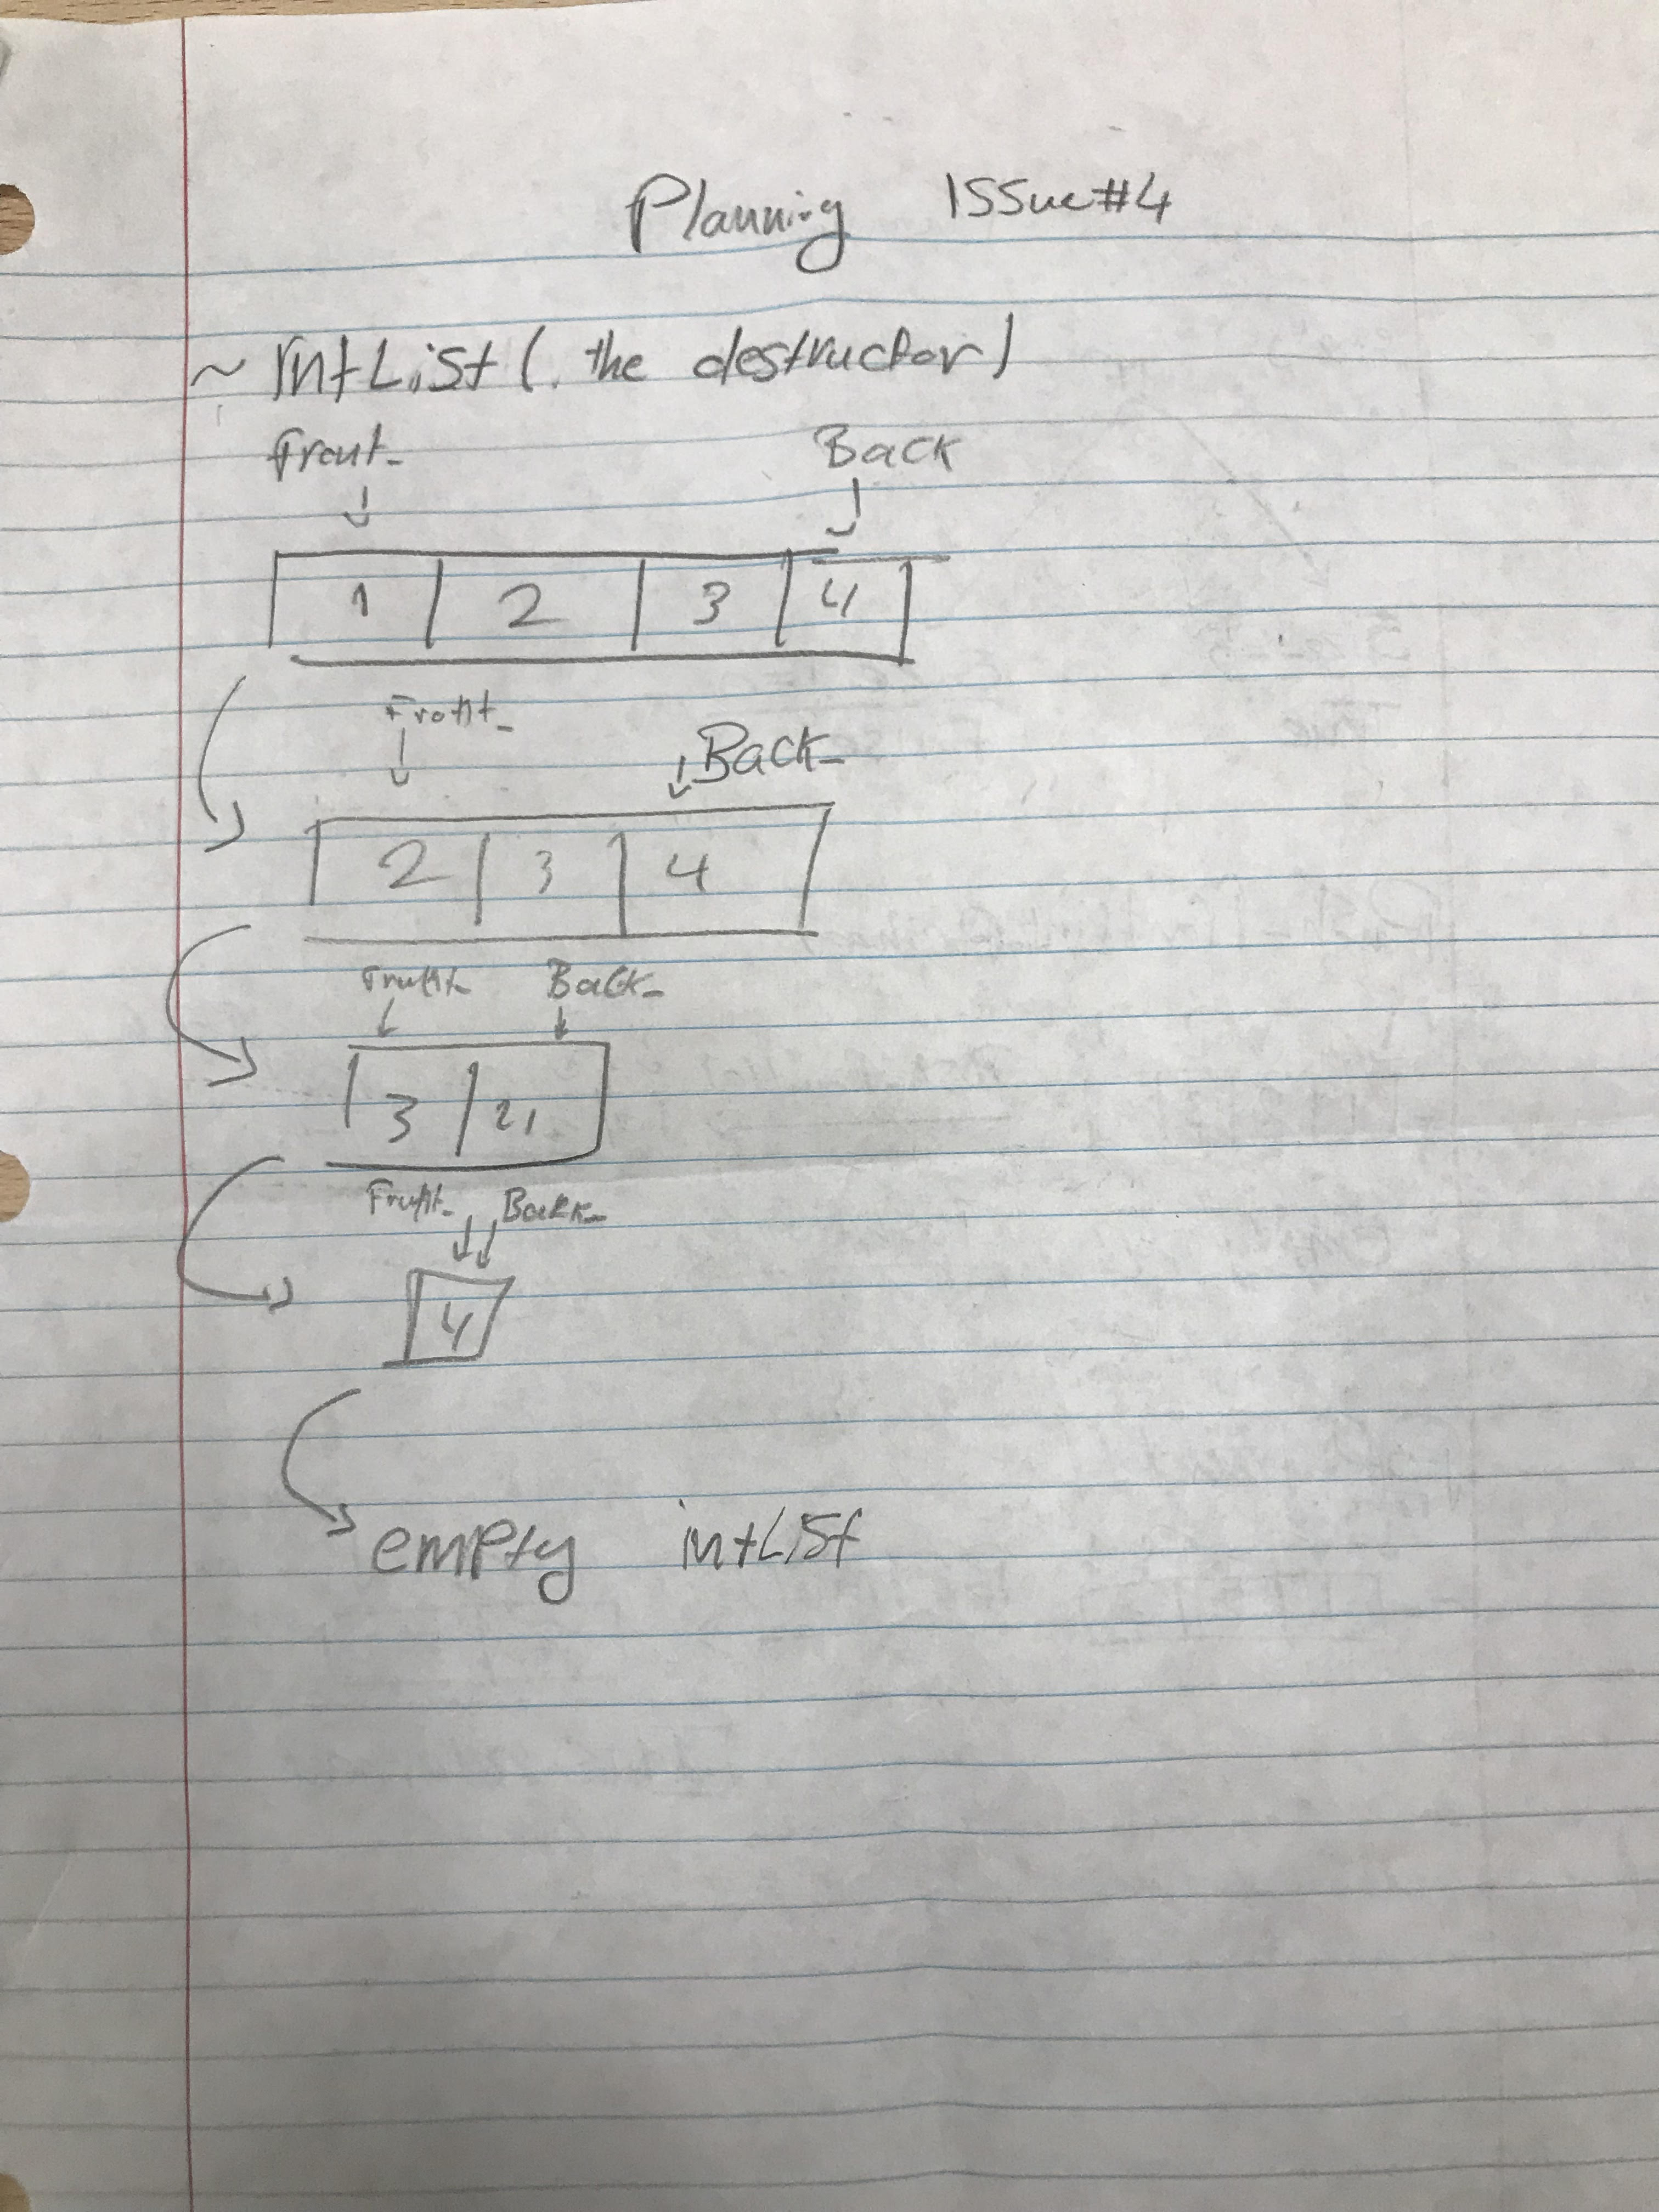 Planning ISSue#4
~ IntList (. the destructor)
front_ Back
1 2 3 4
Front_ Back_
2 3 4
Front_ Back_
3 4
Front_ Back_
4
empty intLISt